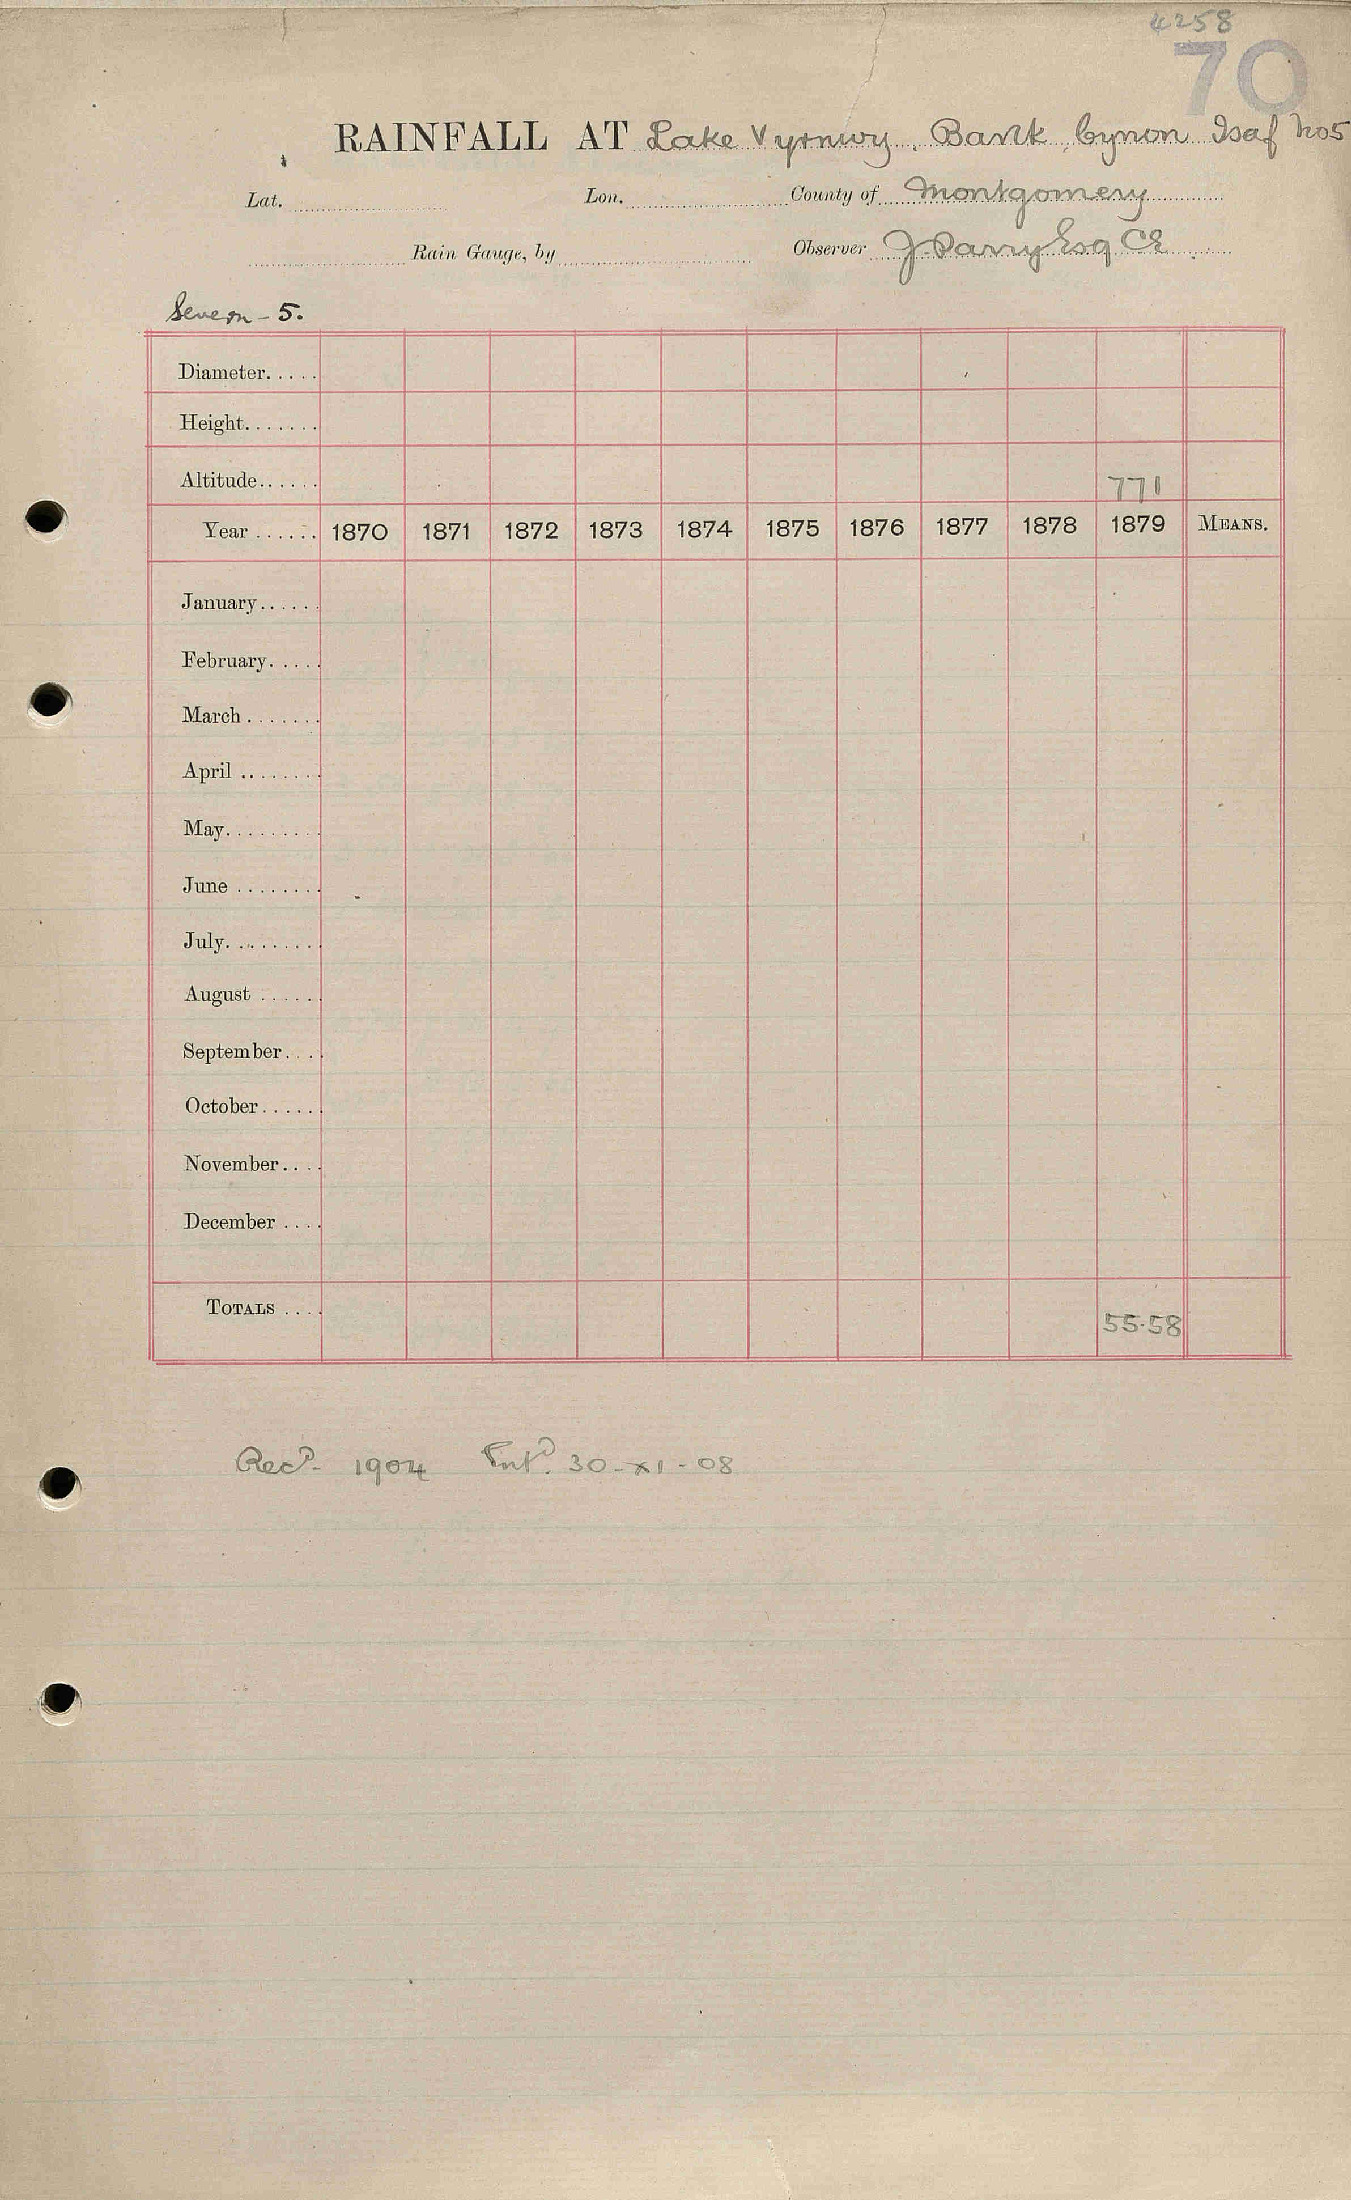 4258
70
RAINFALL AT Lake Vyrnwy. Bank, Cynon Isaf No5
Lat. Lon. County of Montgomery
Rain Gauge, by Observer J Parry Esq CE
Severn - 5.
Diameter.....
Height.......
Altitude...... 771
Year ...... 1870 1871 1872 1873 1874 1875 1876 1877 1878 1879 MEANS.
January......
February.....
March .......
April ........
May.........
June ........
July.........
August ......
September....
October......
November....
December ....
TOTALS .... 55.58
Recd. 1904 Entd. 30-XI-08